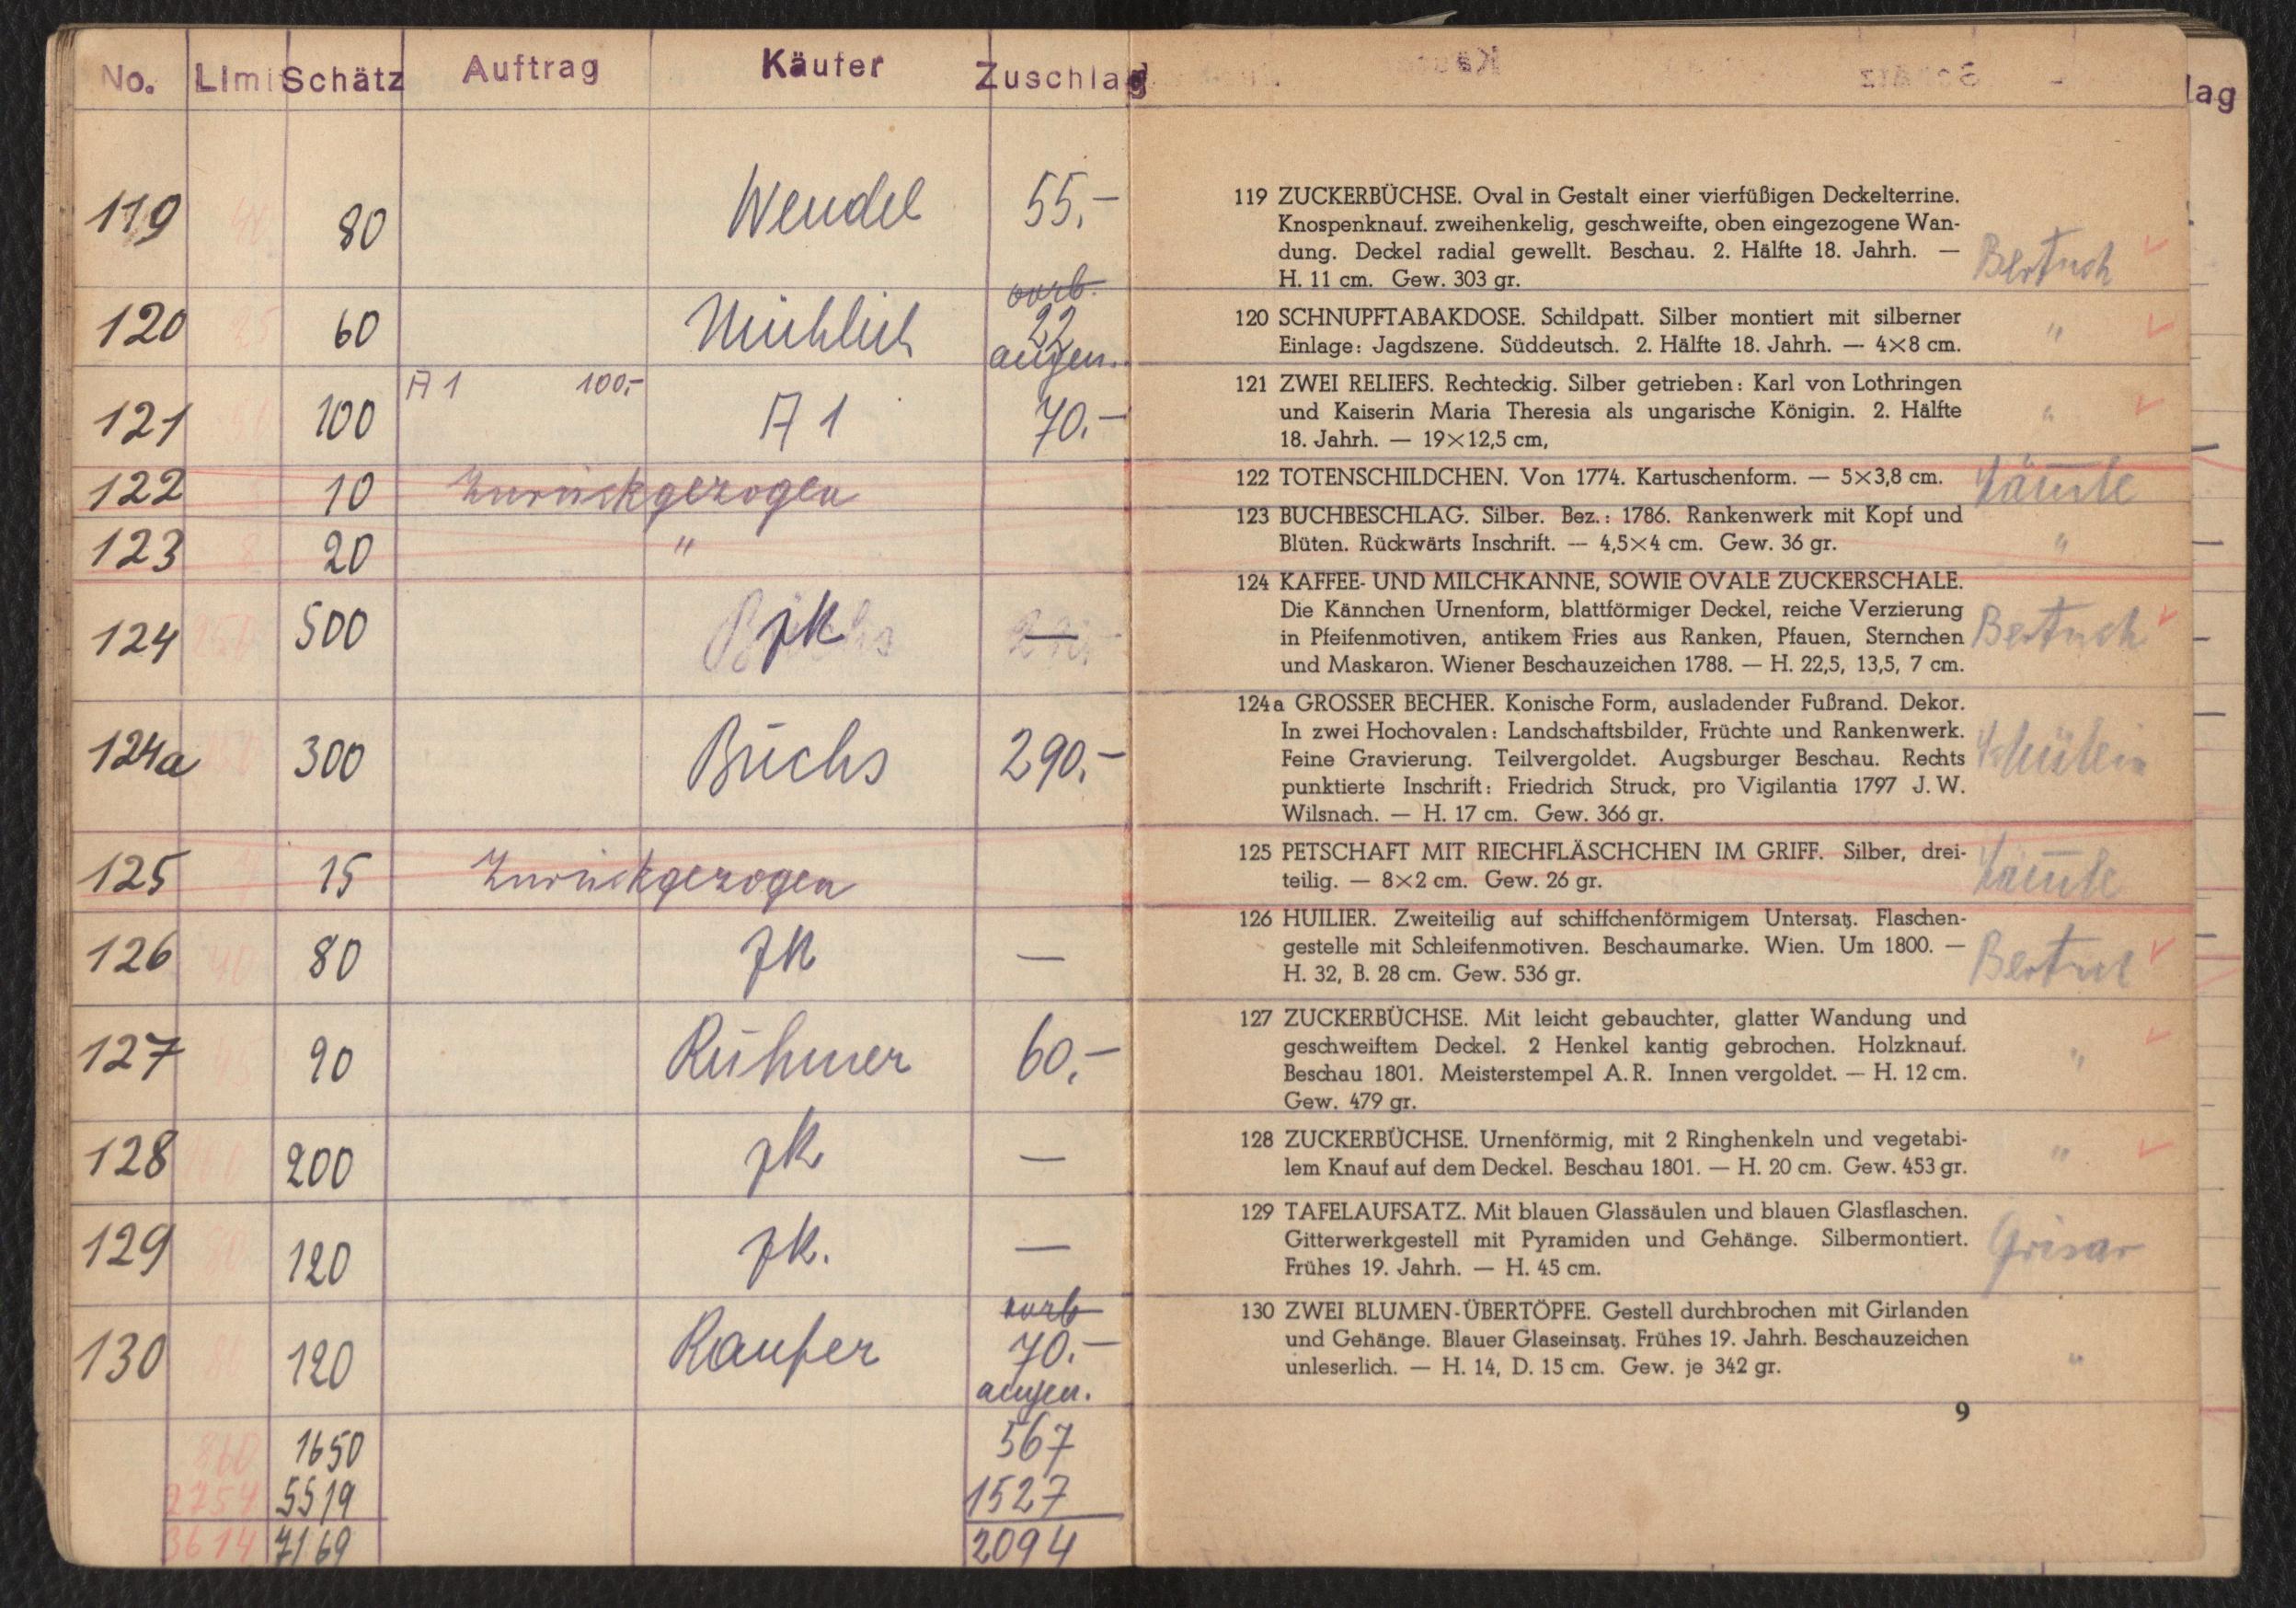 No. Limi Schätz Auftrag Käufer Zuschlag
119 40 80 Wendel 55.-
vorb.
120 25 60 22
angen.
A 1 100,-
121 100 A 1 70.-
122 10 Zurückgezogen
123 8 20 "
124 250 500 zk —
124a 300 Büchs 290.-
125 15 Zurückgezogen
126 40 80 zk —
127 45 90 Rühmer 60.-
128 200 zk —
129 120 zk. —
vorb
130 120 Kaufer 70.-
angen.
860 1650 567
2754 5519 1527
3614 7169 2094
lag
119 ZUCKERBÜCHSE. Oval in Gestalt einer vierfüßigen Deckelterrine.
Knospenknauf. zweihenkelig, geschweifte, oben eingezogene Wan-
dung. Deckel radial gewellt. Beschau. 2. Hälfte 18. Jahrh. — Bertuch
H. 11 cm. Gew. 303 gr.
120 SCHNUPFTABAKDOSE. Schildpatt. Silber montiert mit silberner "
Einlage: Jagdszene. Süddeutsch. 2. Hälfte 18. Jahrh. — 4×8 cm.
121 ZWEI RELIEFS. Rechteckig. Silber getrieben: Karl von Lothringen
und Kaiserin Maria Theresia als ungarische Königin. 2. Hälfte "
18. Jahrh. — 19×12,5 cm,
122 TOTENSCHILDCHEN. Von 1774. Kartuschenform. — 5×3,8 cm.
123 BUCHBESCHLAG. Silber. Bez.: 1786. Rankenwerk mit Kopf und
Blüten. Rückwärts Inschrift. — 4,5×4 cm. Gew. 36 gr. "
124 KAFFEE- UND MILCHKANNE, SOWIE OVALE ZUCKERSCHALE.
Die Kännchen Urnenform, blattförmiger Deckel, reiche Verzierung
in Pfeifenmotiven, antikem Fries aus Ranken, Pfauen, Sternchen Bertuch
und Maskaron. Wiener Beschauzeichen 1788. — H. 22,5, 13,5, 7 cm.
124a GROSSER BECHER. Konische Form, ausladender Fußrand. Dekor.
In zwei Hochovalen: Landschaftsbilder, Früchte und Rankenwerk.
Feine Gravierung. Teilvergoldet. Augsburger Beschau. Rechts
punktierte Inschrift: Friedrich Struck, pro Vigilantia 1797 J. W.
Wilsnach. — H. 17 cm. Gew. 366 gr.
125 PETSCHAFT MIT RIECHFLÄSCHCHEN IM GRIFF. Silber, drei-
teilig. — 8×2 cm. Gew. 26 gr.
126 HUILIER. Zweiteilig auf schiffchenförmigem Untersatz. Flaschen-
gestelle mit Schleifenmotiven. Beschaumarke. Wien. Um 1800. — Bertuch
H. 32, B. 28 cm. Gew. 536 gr.
127 ZUCKERBÜCHSE. Mit leicht gebauchter, glatter Wandung und
geschweiftem Deckel. 2 Henkel kantig gebrochen. Holzknauf. "
Beschau 1801. Meisterstempel A. R. Innen vergoldet. — H. 12 cm.
Gew. 479 gr.
128 ZUCKERBÜCHSE. Urnenförmig, mit 2 Ringhenkeln und vegetabi- "
lem Knauf auf dem Deckel. Beschau 1801. — H. 20 cm. Gew. 453 gr.
129 TAFELAUFSATZ. Mit blauen Glassäulen und blauen Glasflaschen.
Gitterwerkgestell mit Pyramiden und Gehänge. Silbermontiert. Grisar
Frühes 19. Jahrh. — H. 45 cm.
130 ZWEI BLUMEN-ÜBERTÖPFE. Gestell durchbrochen mit Girlanden
und Gehänge. Blauer Glaseinsatz. Frühes 19. Jahrh. Beschauzeichen
unleserlich. — H. 14, D. 15 cm. Gew. je 342 gr. "
9